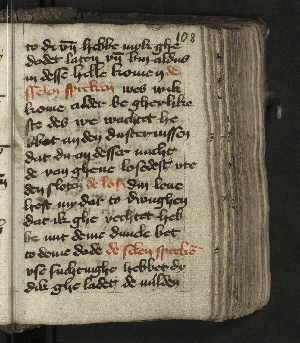 108
to di vñ hebbe mik ghe
dodet laten vñ bin aldus
in desse helle komen de
sselen spreken wes wilk
kome alder be gherlike
ste des we wachtet he
bbet an den dusternissen
dat du an desser nacht
de van ghene losedest vte
den sloten de los din leue
heft my dar to dwunghen
dat ik ghe vechtet heb
be mit deme duuele bet
to deme dode de selen spreke
vse suchtinghe hebbet dy
dik ghe ladet de milden